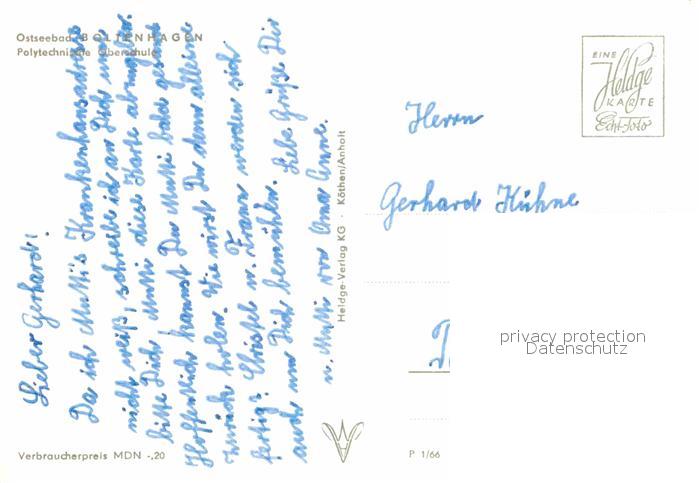 Ostseebad BOLTENHAGEN
Polytechnische Oberschule
Lieber Gerhard!
Da ich Mutti's Krankenhausadresse
nicht weiß, schreibe ich an Dich um
bitte Dich Mutti diese Karte abzugeben.
Hoffentlich kannst Du Mutti bald gesund
zurück holen. Wie wirst Du denn alleine
fertig? Christel u. Frann werden sich
auch um Dich bemühen. Liebe Grüße Dir
u. Mutti von Oma Anne.
Heldge-Verlag KG · Köthen/Anholt
EINE
Heldge
KARTE
Echt-Foto
Herrn
Gerhard Kühne
privacy protection
Datenschutz
Verbraucherpreis MDN -,20
P 1/66